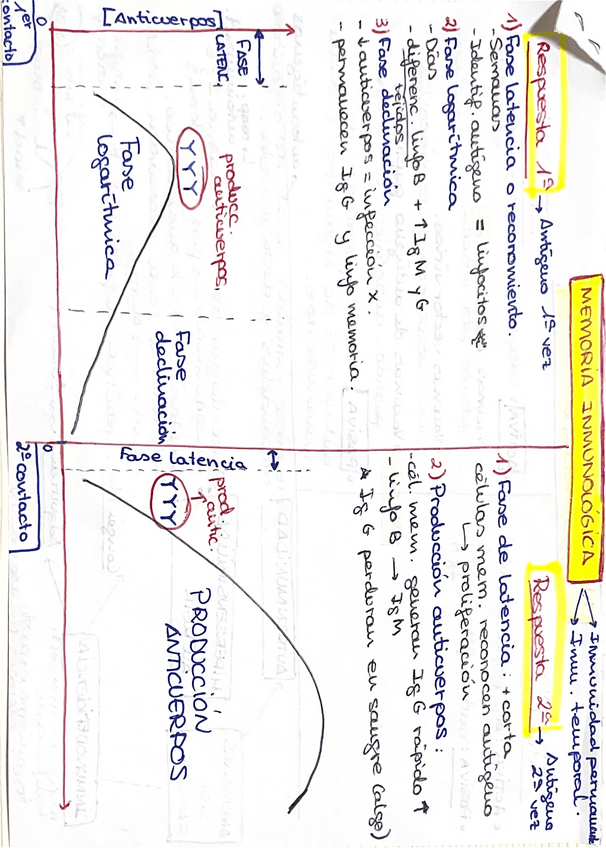 MEMORIA INMUNOLÓGICA
→ Inmunidad permanente
→ Inmu. temporal.
Respuesta 1ª → Antígeno 1ª vez
1) Fase latencia o reconomiento.
- Semanas
- Identif. antígeno = linfocitos
2) Fase logarítmica
- Días
- diferenc. linfo B + ↑ IgM y G
tejidos
3) Fase declinación
- ↓ anticuerpos = infección X.
- permanecen IgG y linfo memoria.
Respuesta 2ª → Antígeno
2ª vez
1) Fase de latencia: + corta
células mem. reconocen antígeno
↳ proliferación
2) Producción anticuerpos:
- cél. mem. generan IgG rápido ↑
- linfo B → IgM
IgG perduran en sangre (algo)
[Anticuerpos]
FASE
LATENC.
producc.
anticuerpos.
YYY
Fase
logarítmica
Fase
declinación
0
1er
contacto
Fase latencia
prod.
antic.
YYY
PRODUCCIÓN
ANTICUERPOS
0
2º contacto